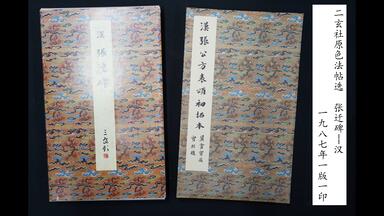 二玄社原色法帖选 张迁碑—汉
一九八七年一版一印
漢張公方表頌初拓本
漢 張遷碑